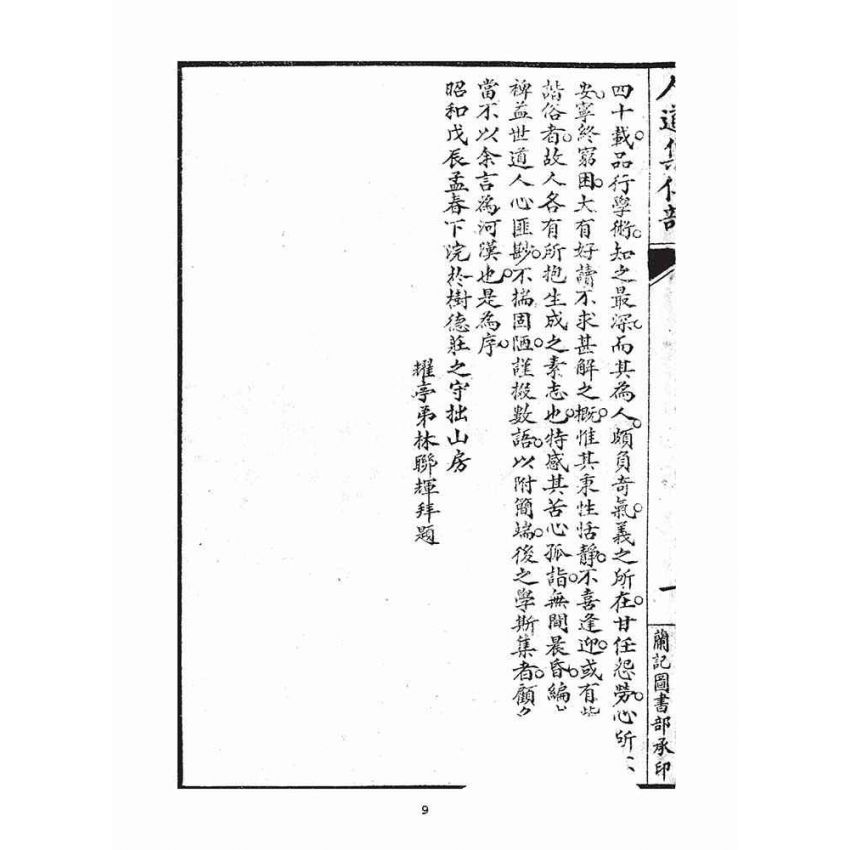 四十載。品行學術。知之最深。而其為人。頗負奇氣。義之所在。甘任怨勞。心所
安。寧終窮困。大有好讀不求甚解之概。惟其秉性恬靜。不喜逢迎。或有
諧俗者。故人各有所抱生成之素志也。特感其苦心孤詣。無間晨昏。編
裨益世道人心匪尠。不揣固陋。謹掇數語。以附簡端。後之學斯集者。顧
當不以余言為河漢也。是為序。
昭和戊辰孟春下浣於樹德莊之守拙山房
擢亭弟林聯輝拜題
人道集
一
蘭記圖書部承印
9